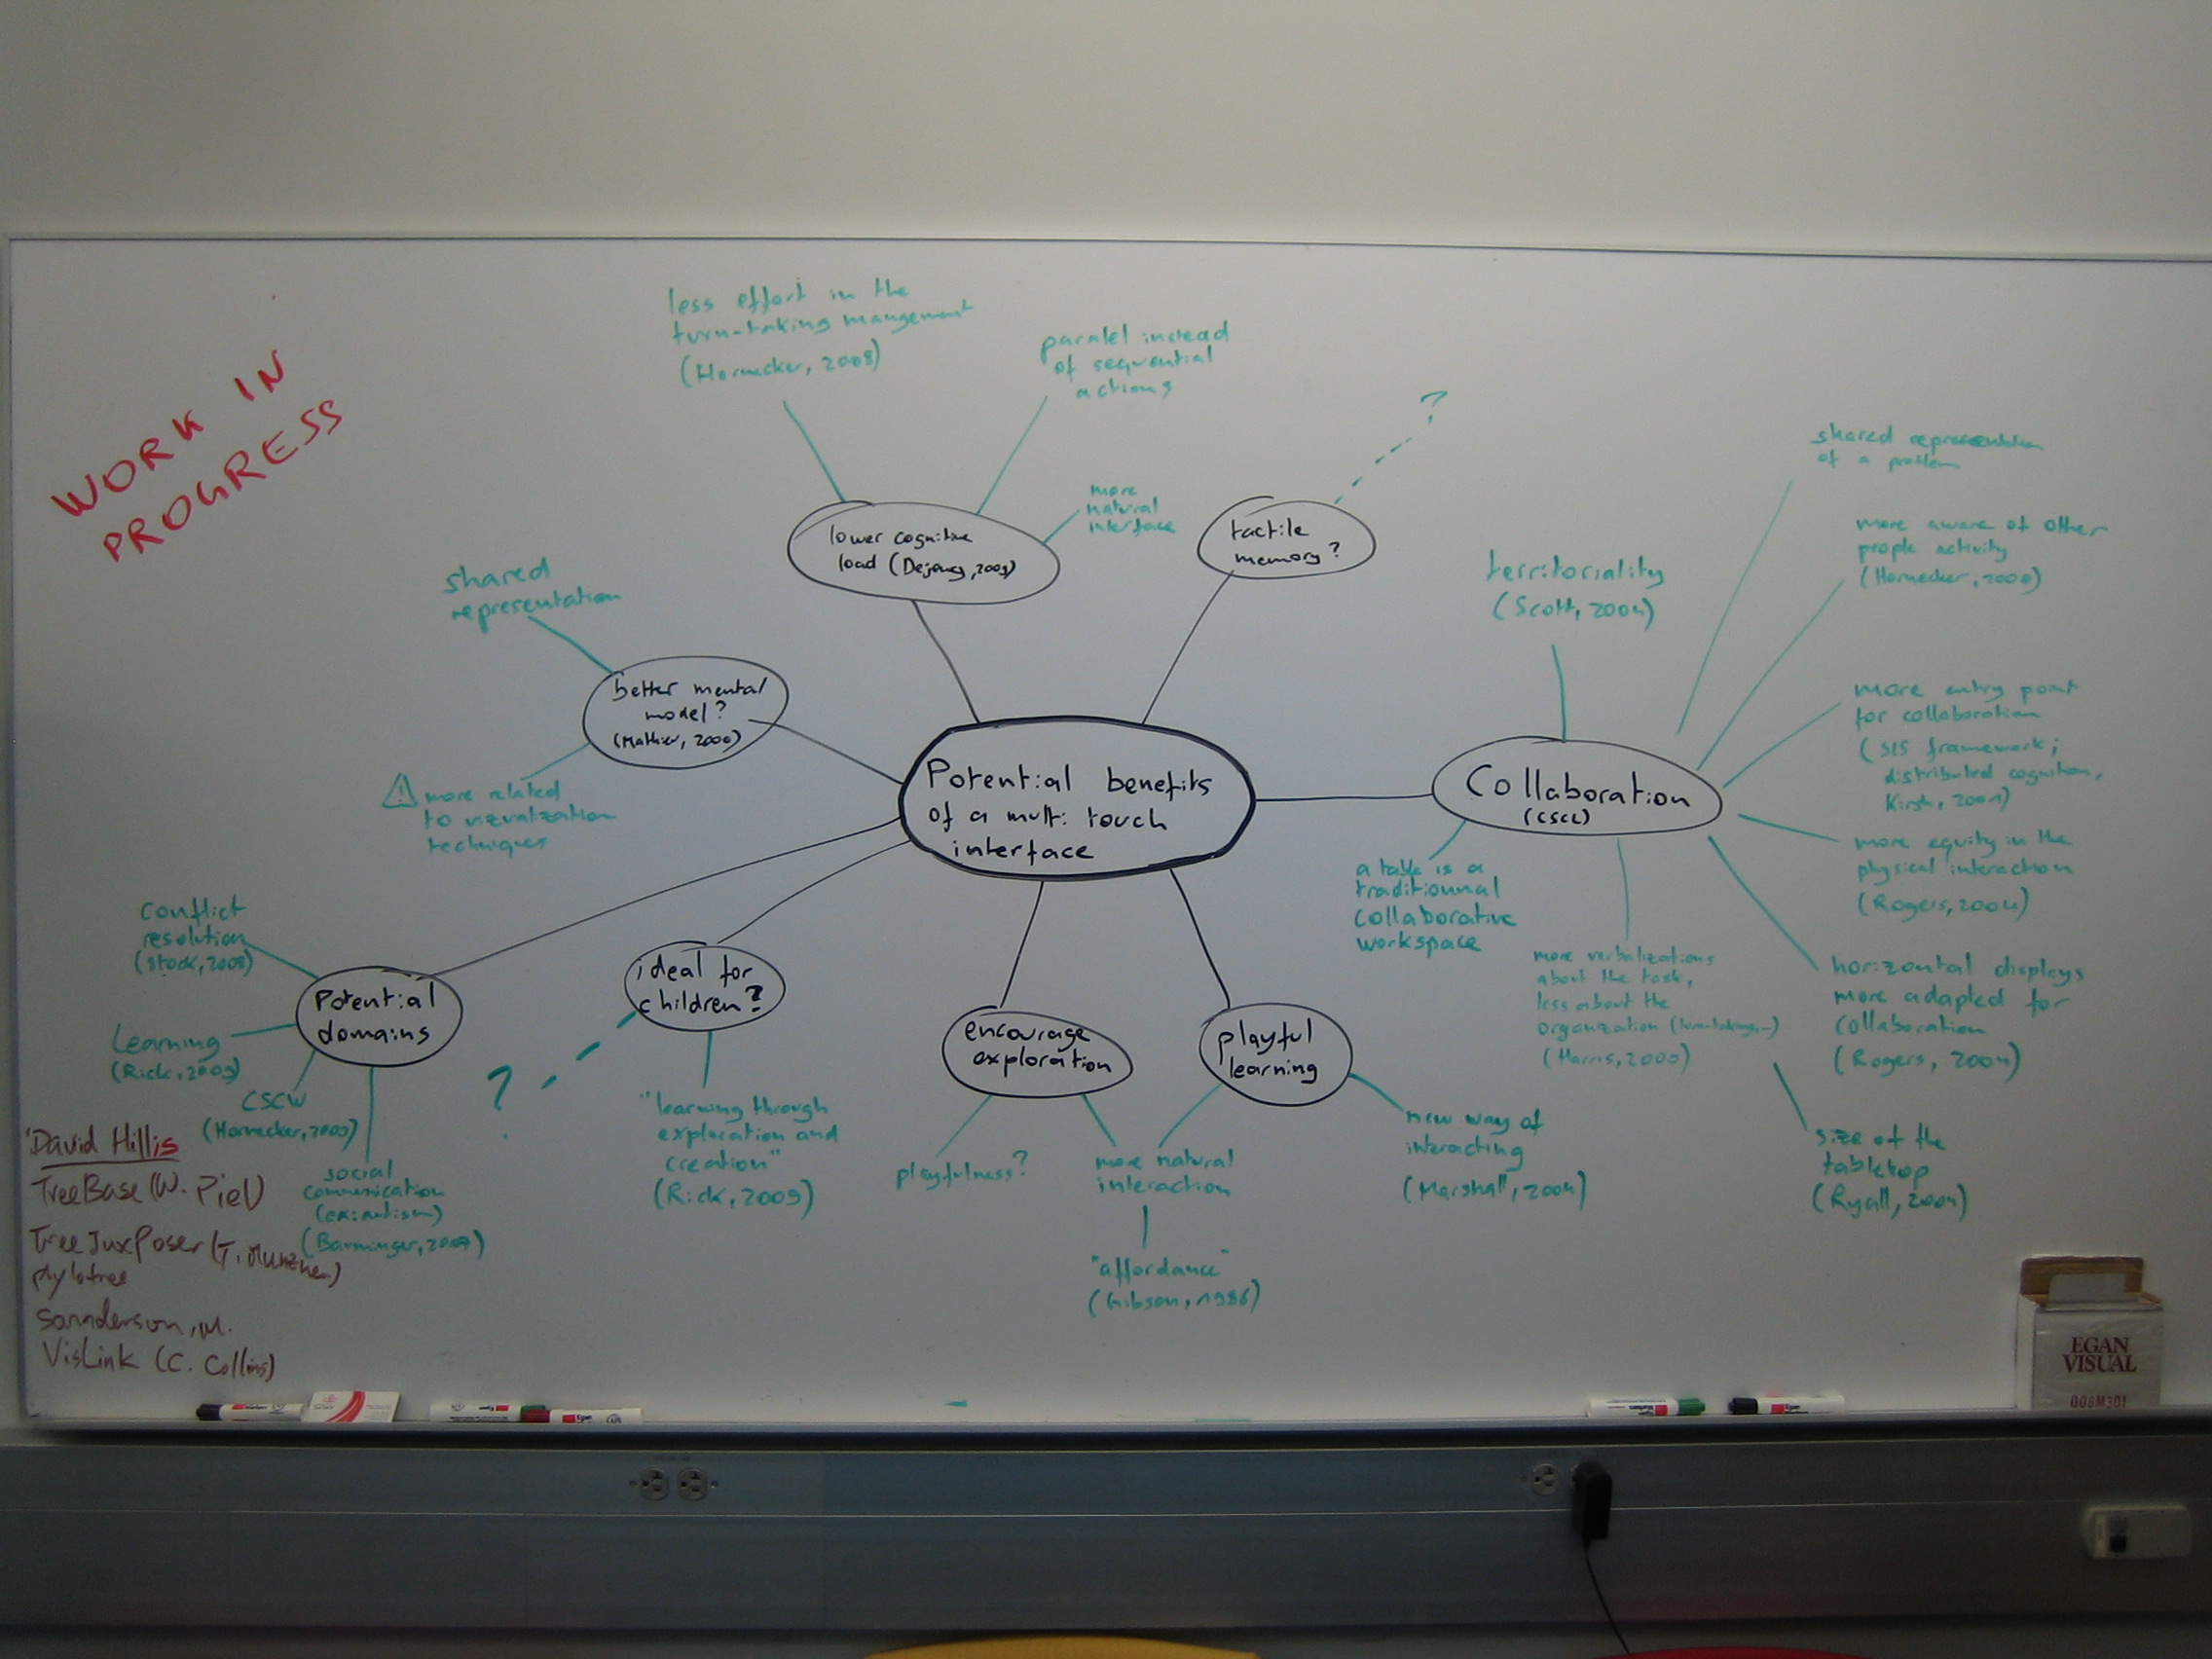 WORK IN
PROGRESS
less effort in the
turn-taking mangement
(Hornecker, 2008)
paralel instead
of sequential
actions
more
natural
interface
lower cognitive
load (
tactile
memory?
?
shared
representation
better mental
model?
more related
to vizualization
techniques
Potential benefits
of a multi touch
interface
Collaboration
(CSCL)
territoriality
(Scott, 2004)
shared representation
of a problem
more aware of other
people activity
(Hornecker,
more entry point
for collaboration
framework;
distributed cognition,
Kirsh,
more equity in the
physical interaction
(Rogers, 2004)
horizontal displays
more adapted for
collaboration
(Rogers, 2004)
size of the
tabletop
(Ryall, 2004)
a table is a
traditionnal
collaborative
workspace
more verbalizations
about the task,
less about the
organization (turn-taking,
(Harris, 2009)
playful
learning
new way of
interacting
(Marshall, 2004)
more natural
interaction
"affordance"
(Gibson, 1986)
encourage
exploration
playfulness?
ideal for
children?
?
"learning through
exploration and
creation"
(Rick, 2009)
Potential
domains
conflict
resolution
(Stock, 2008)
Learning
(Rick, 2009)
CSCW
(Hornecker,
social
communication
(ex: autism)
(Barminger,
David Hillis
TreeBase (W. Piel)
TreeJuxPoser (T.
VisLink (C. Collins)
EGAN
VISUAL
008M301